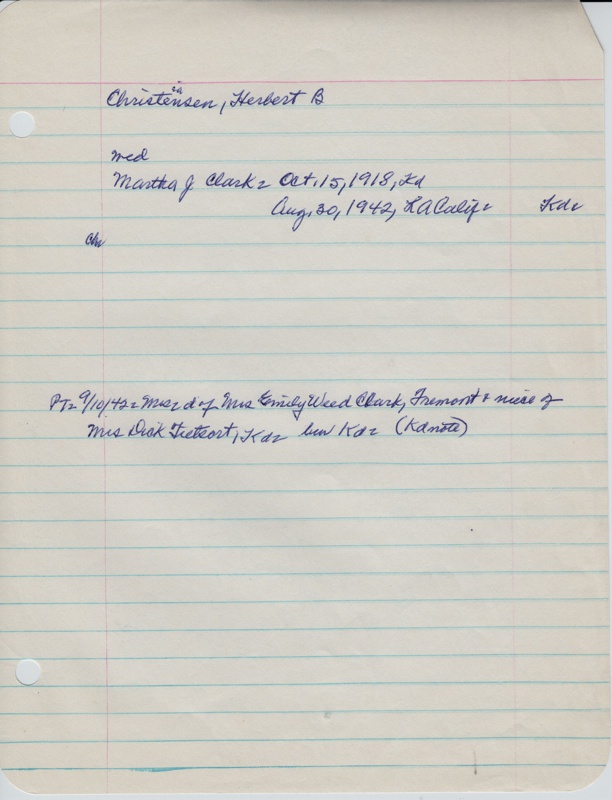 ia
Christensen, Herbert B
med
Martha J Clark = Oct. 15, 1918, Kd
Aug, 30, 1942, LA Calif = Kd=
ch
PT= 9/10/42 = Mrs = d of Mrs Emily Weed Clark, Fremont & niece of
Mrs Dick Tietsort, Kd= bur Kd= (Kdnote)